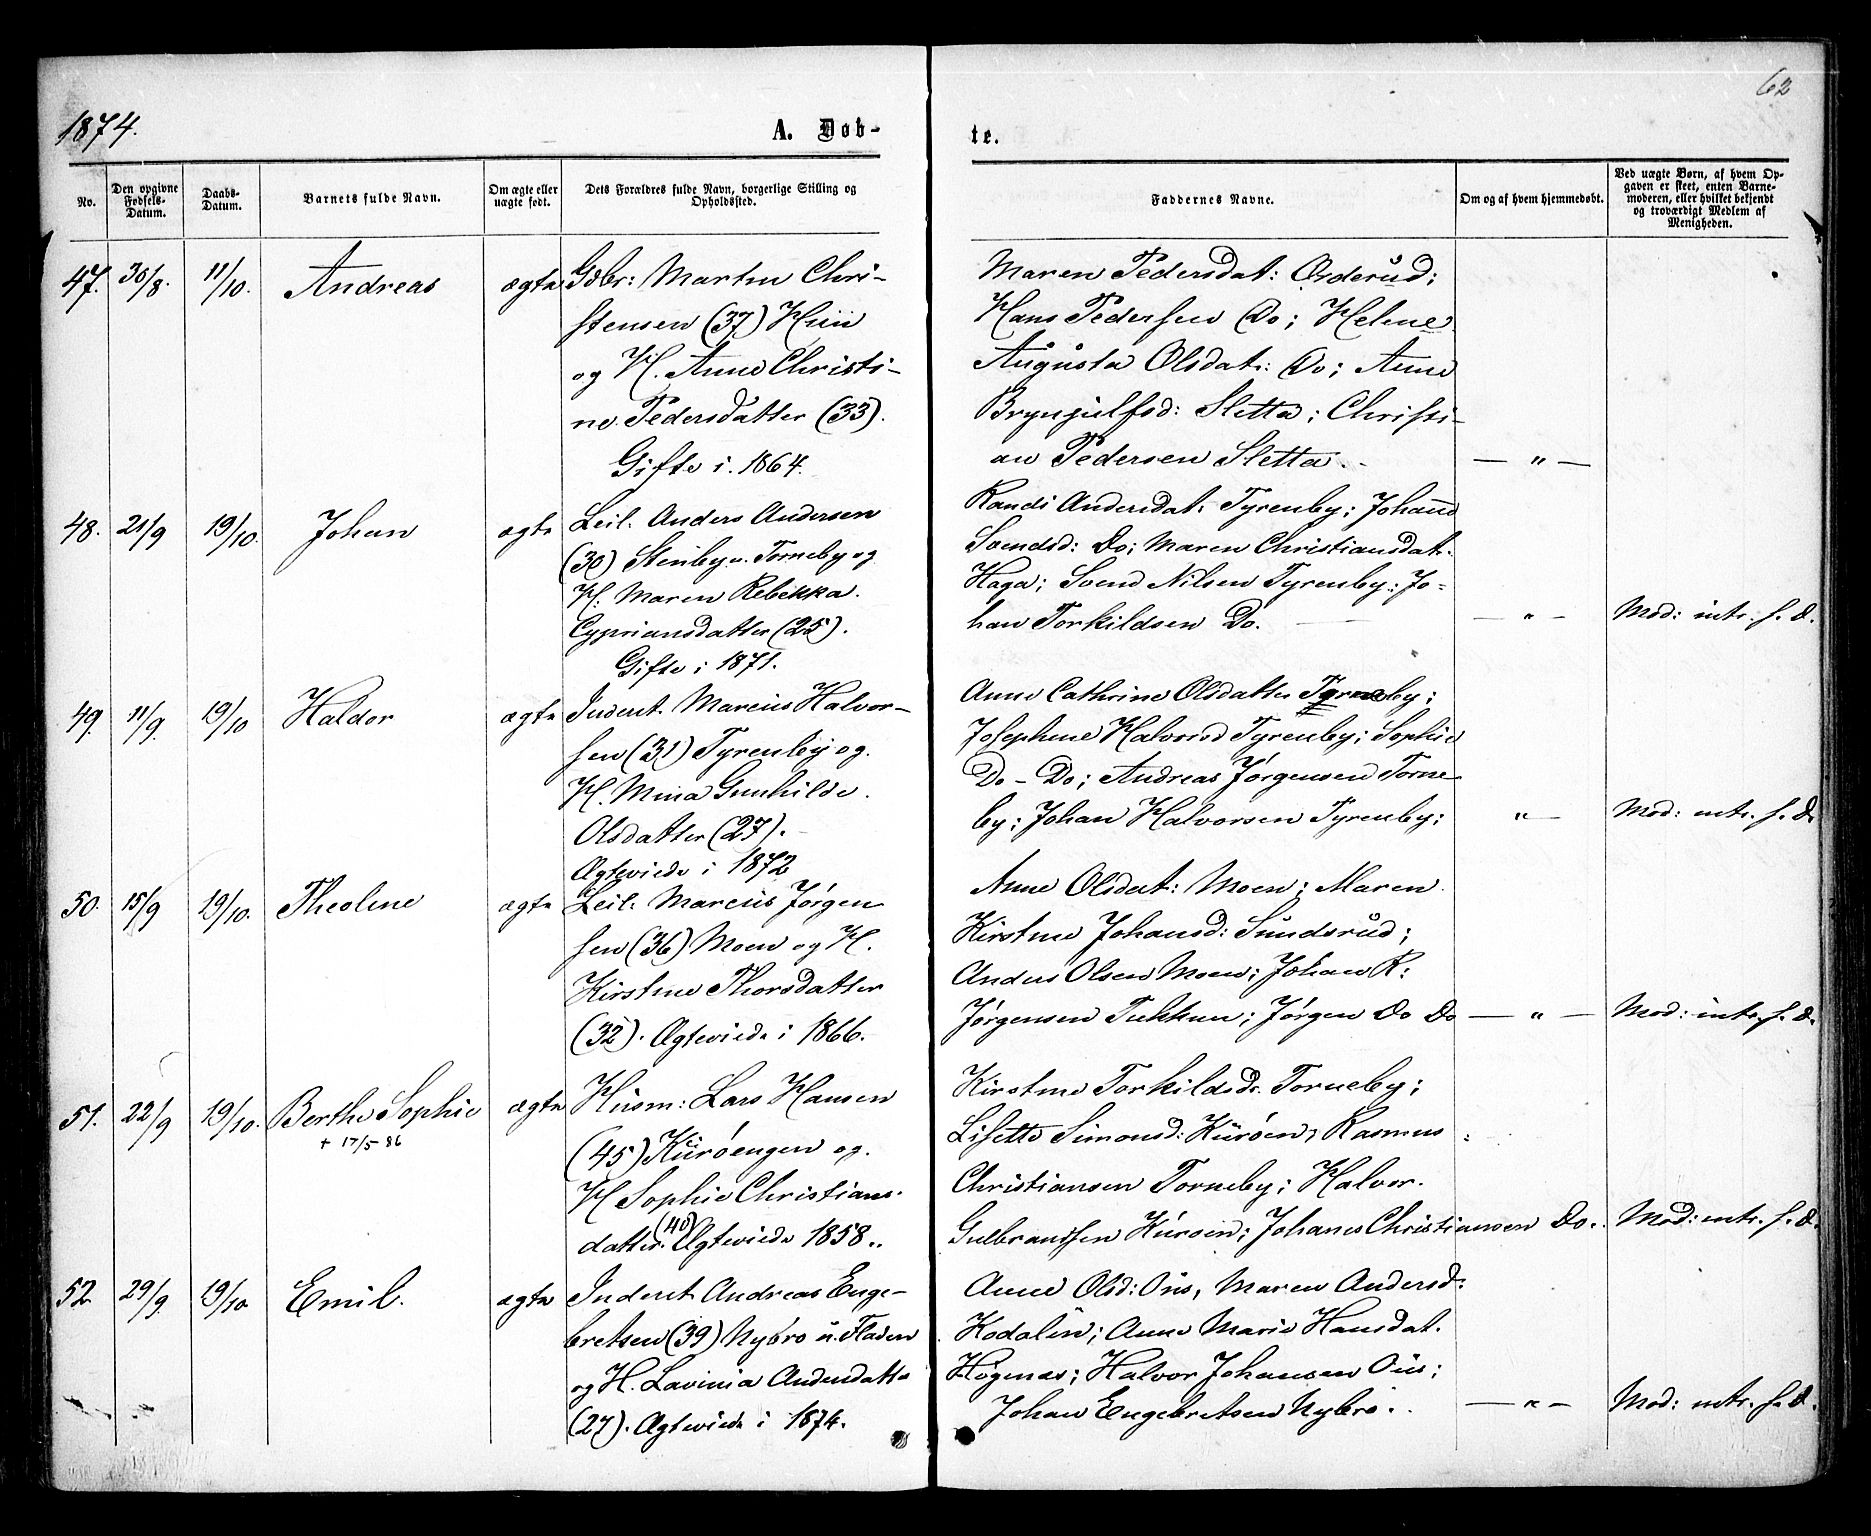 62
1874.
A. Døb-
te.
No.
Den opgivne Fødsels-Datum.
Daabs-Datum.
Barnets fulde Navn.
Om ægte eller uægte født.
Dets Forældres fulde Navn, borgerlige Stilling og Opholdssted.
Faddernes Navne.
Om og af hvem hjemmedøbt.
Ved uægte Børn, af hvem Op-
gaven er skeet, enten Barne-
moderen, eller hvilket bekjendt
og troværdigt Medlem af
Menigheden.
47. 30/8. 11/10. Andreas ægte
Gdbr: Martin Chri-
stensen (37)
og H. Anne Christi-
ne Pedersdatter (33).
Gifte i 1864.
Maren Pedersdat: Orderud;
Hans Pedersen Do; Helene
Augusta Olsdat: Do; Anne
Brynjulfsd: Sletta; Christi-
an Pedersen Sletta.
— " —
48. 21/9 19/10. Johan ægte
Leil. Anders Andersen
(30) Stenby u. Torneby og
H: Maren Rebekka
Cypriansdatter (25).
Gifte i 1871.
Randi Andersdat. Tyrenby; Johanne
Svendsd: Do; Maren Christiansdat.
Haga; Svend Nilsen Tyrenby; Jo-
han Torkildsen Do.
— " — Mod: intr. f. D.
49. 11/9. 19/10 Haldor ægte
Inderst. Marcus Halvor-
sen (31) Tyrenby og
H. Mina Gunhilde
Olsdatter (27).
Ægteviede i 1872
Anne Cathrine Olsdatter Tyrneby;
Josephine Halvorsd Tyrenby; Sophie
Do - Do; Andreas Jørgensen Torne-
by; Johan Halvorsen Tyrenby;
" — Mod: intr. f. D.
50. 15/9 19/10. Theoline ægte
Leil: Marcus Jørgen
sen (36) Moen og H.
Kirstine Thorsdatter
(32). Ægteviede i 1866.
Anne Olsdat: Moen; Maren
Kirstine Johansd: Sundsrud;
Anders Olsen Moen; Johan K:
Jørgensen Tukkun; Jørgen Do Do
— " — Mod: intr. f. D.
51. 22/9 19/10. Berthe Sophie ægte
+ 17/5-86
Husm: Lars Hansen
(45) Kurøengen og
H Sophie Christians-
datter (40) Ægteviede 1858..
Kirstine Torkildsd. Torneby;
Lisette Simonsd: Kurøen; Rasmus
Christiansen Torneby; Halvor
Gulbrandsen Kurøen; Johanes Christiansen Do.. Mod: intr. f. D.
52. 29/9. 19/10. Emil. ægte
Inderst Andreas Enge-
bretsen (39) Nybro u. Fladen
og H. Lavinia Andersdatter
(27). Ægteviede i 1874.
Anne Olsd: Ous, Maren Andersd:
Kodalen; Anne Marie Hansdat.
Høgnæs; Halvor Johansen Ous;
Johan Engebretsen Nybro..
— " — Mod: intr. f. D.